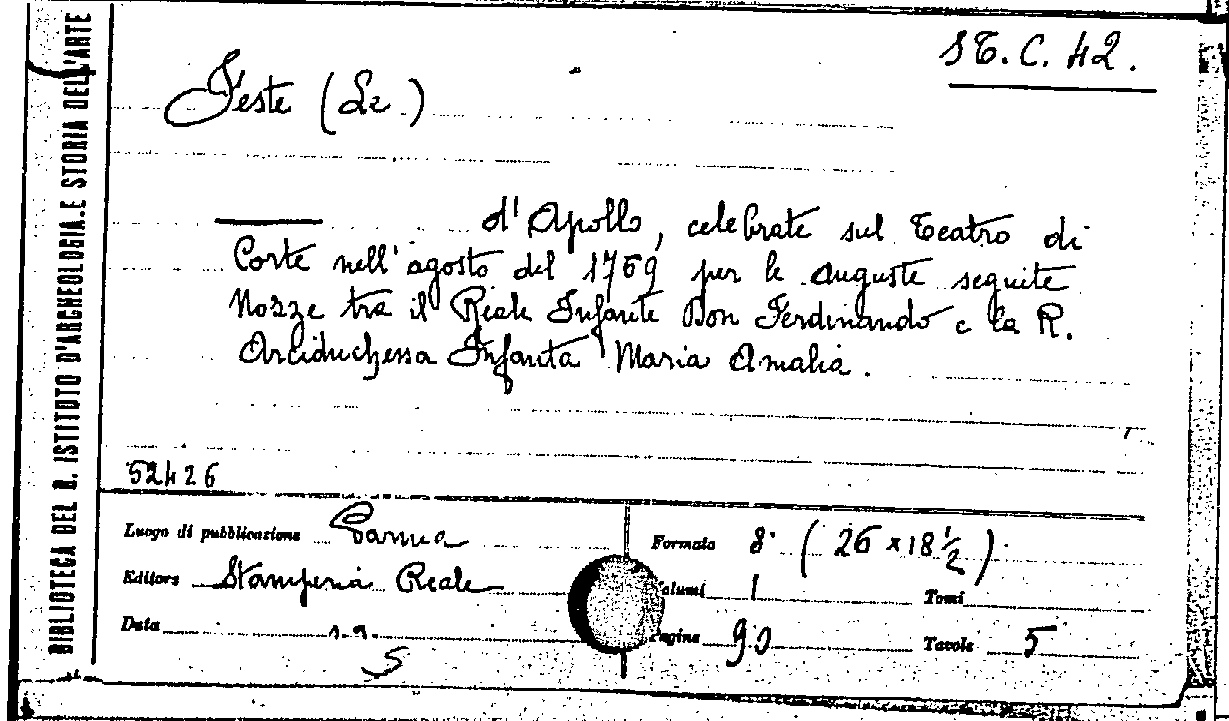 BIBLIOTECA DEL R. ISTITUTO D'ARCHEOLOGIA E STORIA DELL'ARTE
ST. C. 42.
Feste (Le)
d'Apollo, celebrate sul Teatro di
Corte nell'agosto del 1769 per le auguste seguite
Nozze tra il Reale Infante Don Ferdinando e la R.
Arciduchessa Infanta Maria Amalia.
52426
Luogo di pubblicazione Parma
Formato 8° (26 x 18 1/2)
Editore Stamperia Reale
Volumi 1 Tomi
Data s.a.
Pagine 90 Tavole 5
S